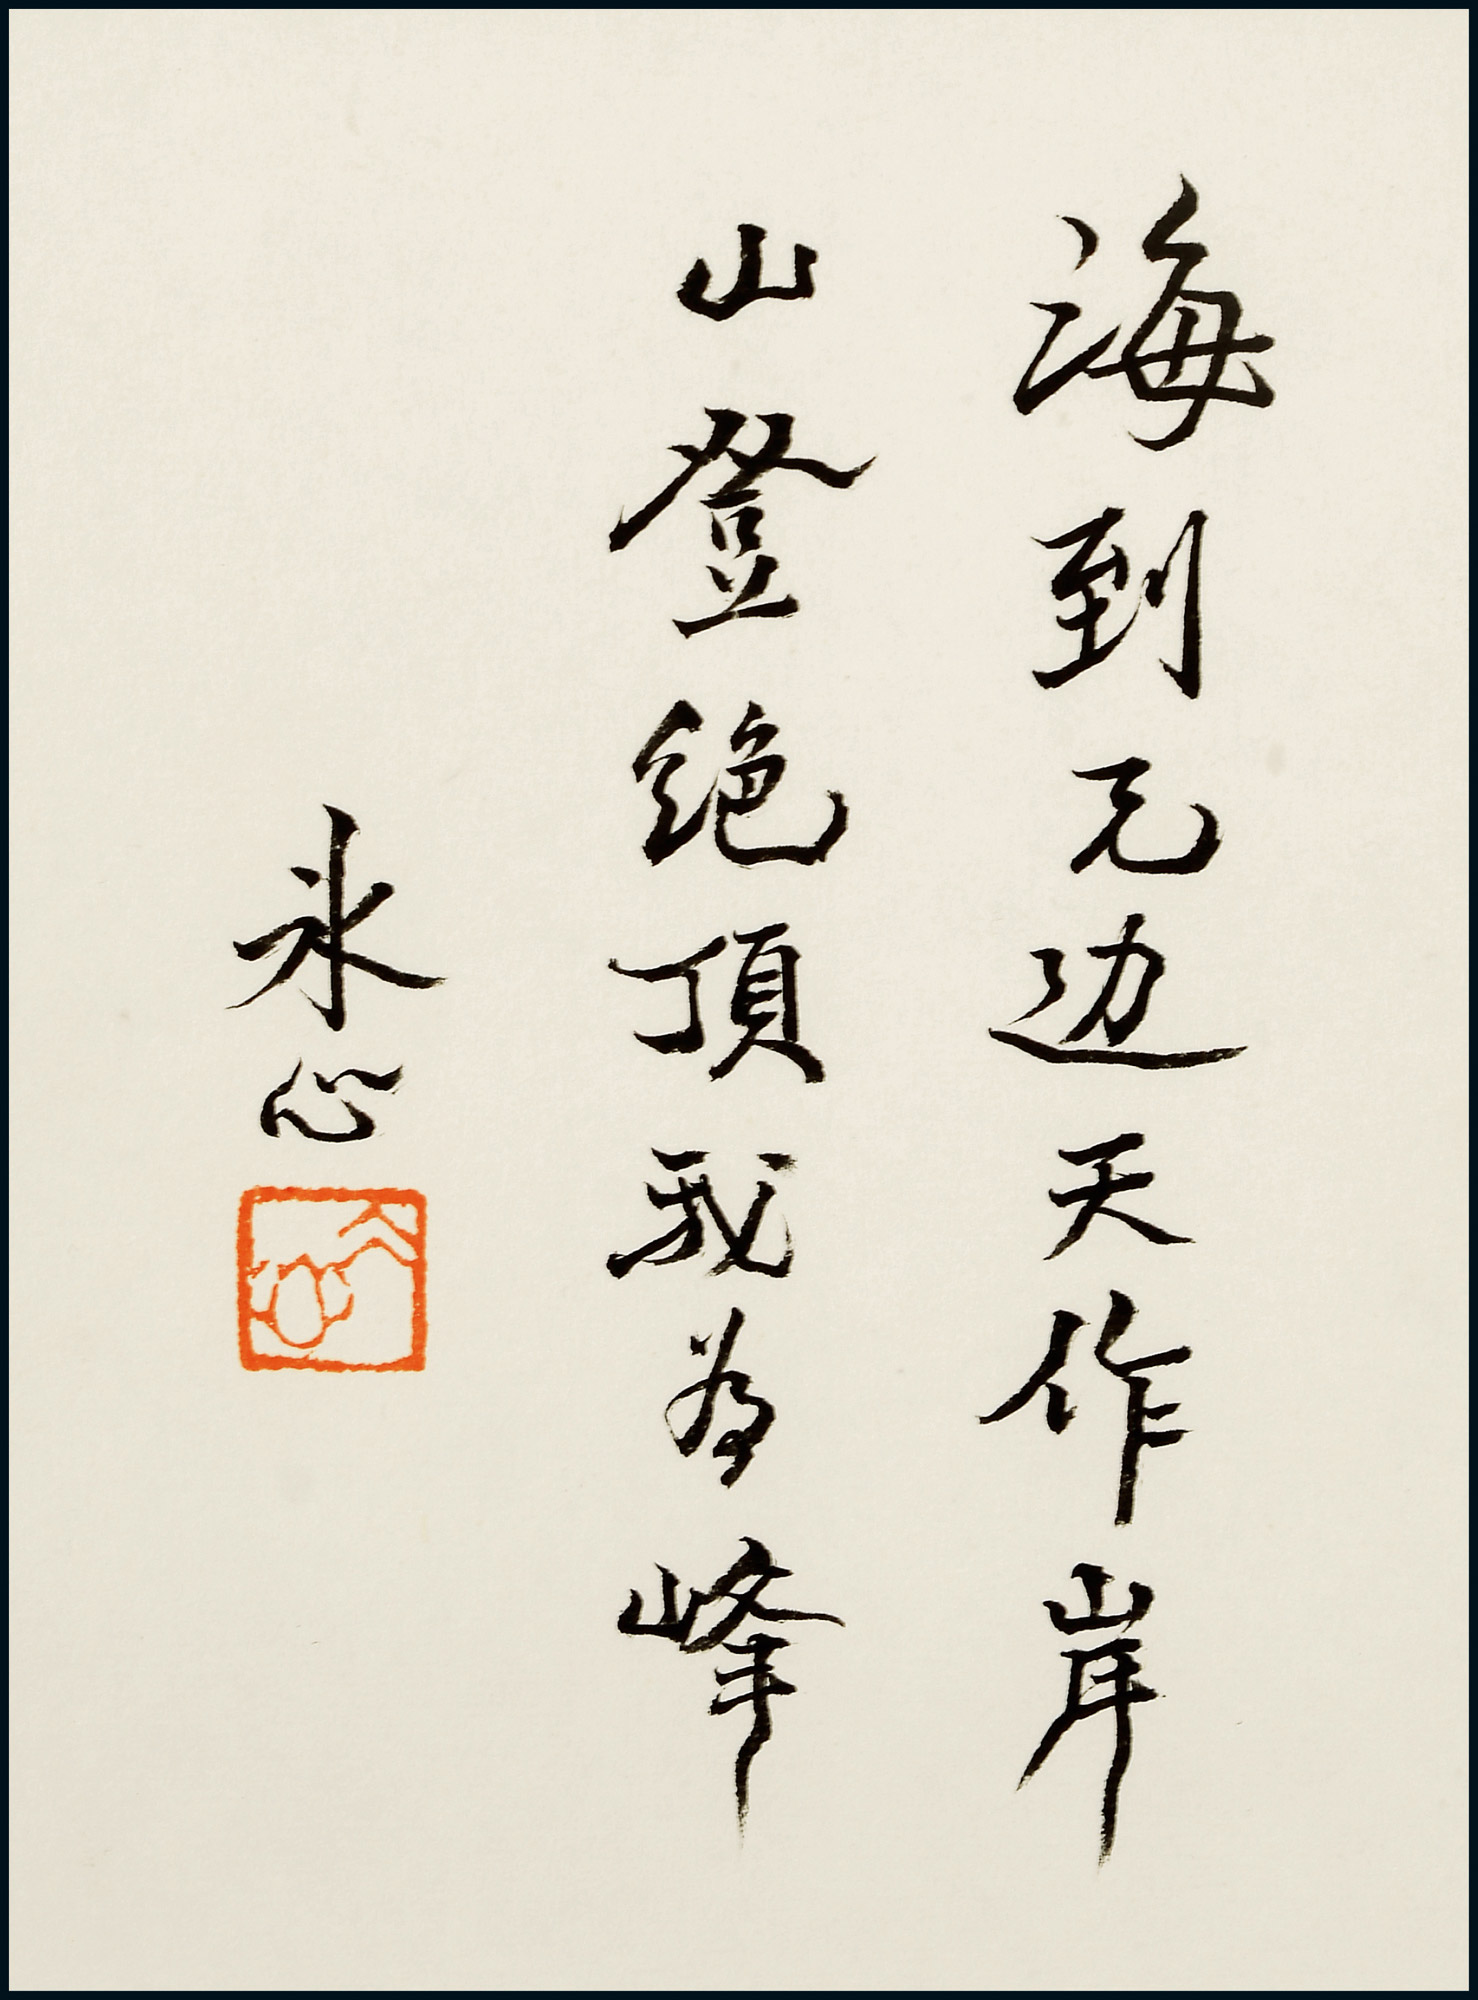 海到无边天作岸
山登绝頂我为峰
冰心